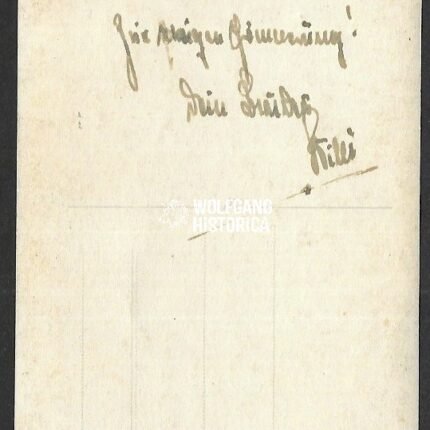 Zur ewigen Erinnerung!
Dein Bruder
Willi
WOLFGANG
HISTORICA